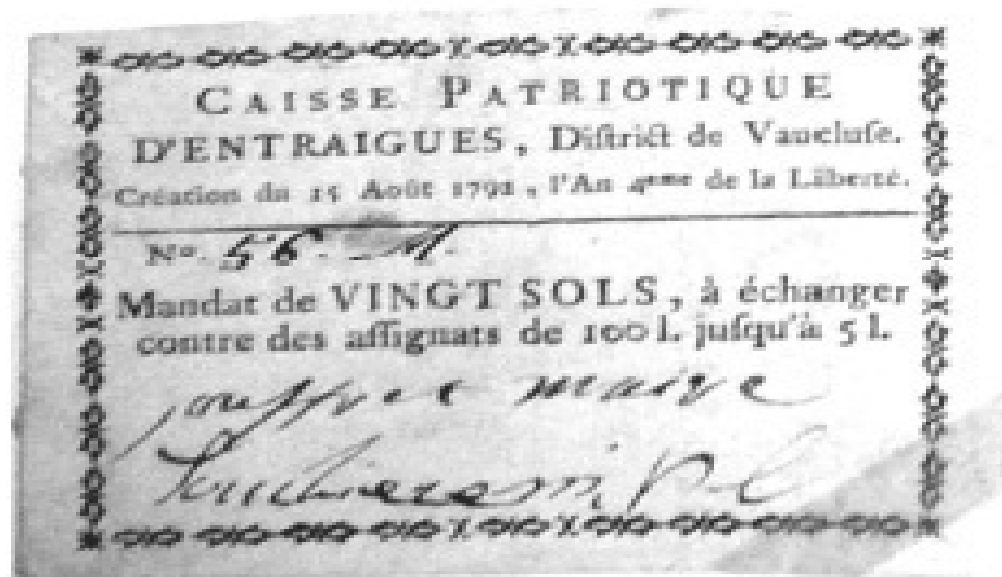 CAISSE PATRIOTIQUE
D'ENTRAIGUES, Diſtrict de Vaucluſe.
Création du 15 Août 1792, l'An 4eme de la Liberté.
No. 56. M.
Mandat de VINGT SOLS, à échanger
contre des aſſignats de 100 l. juſqu'à 5 l.
jouffret maire